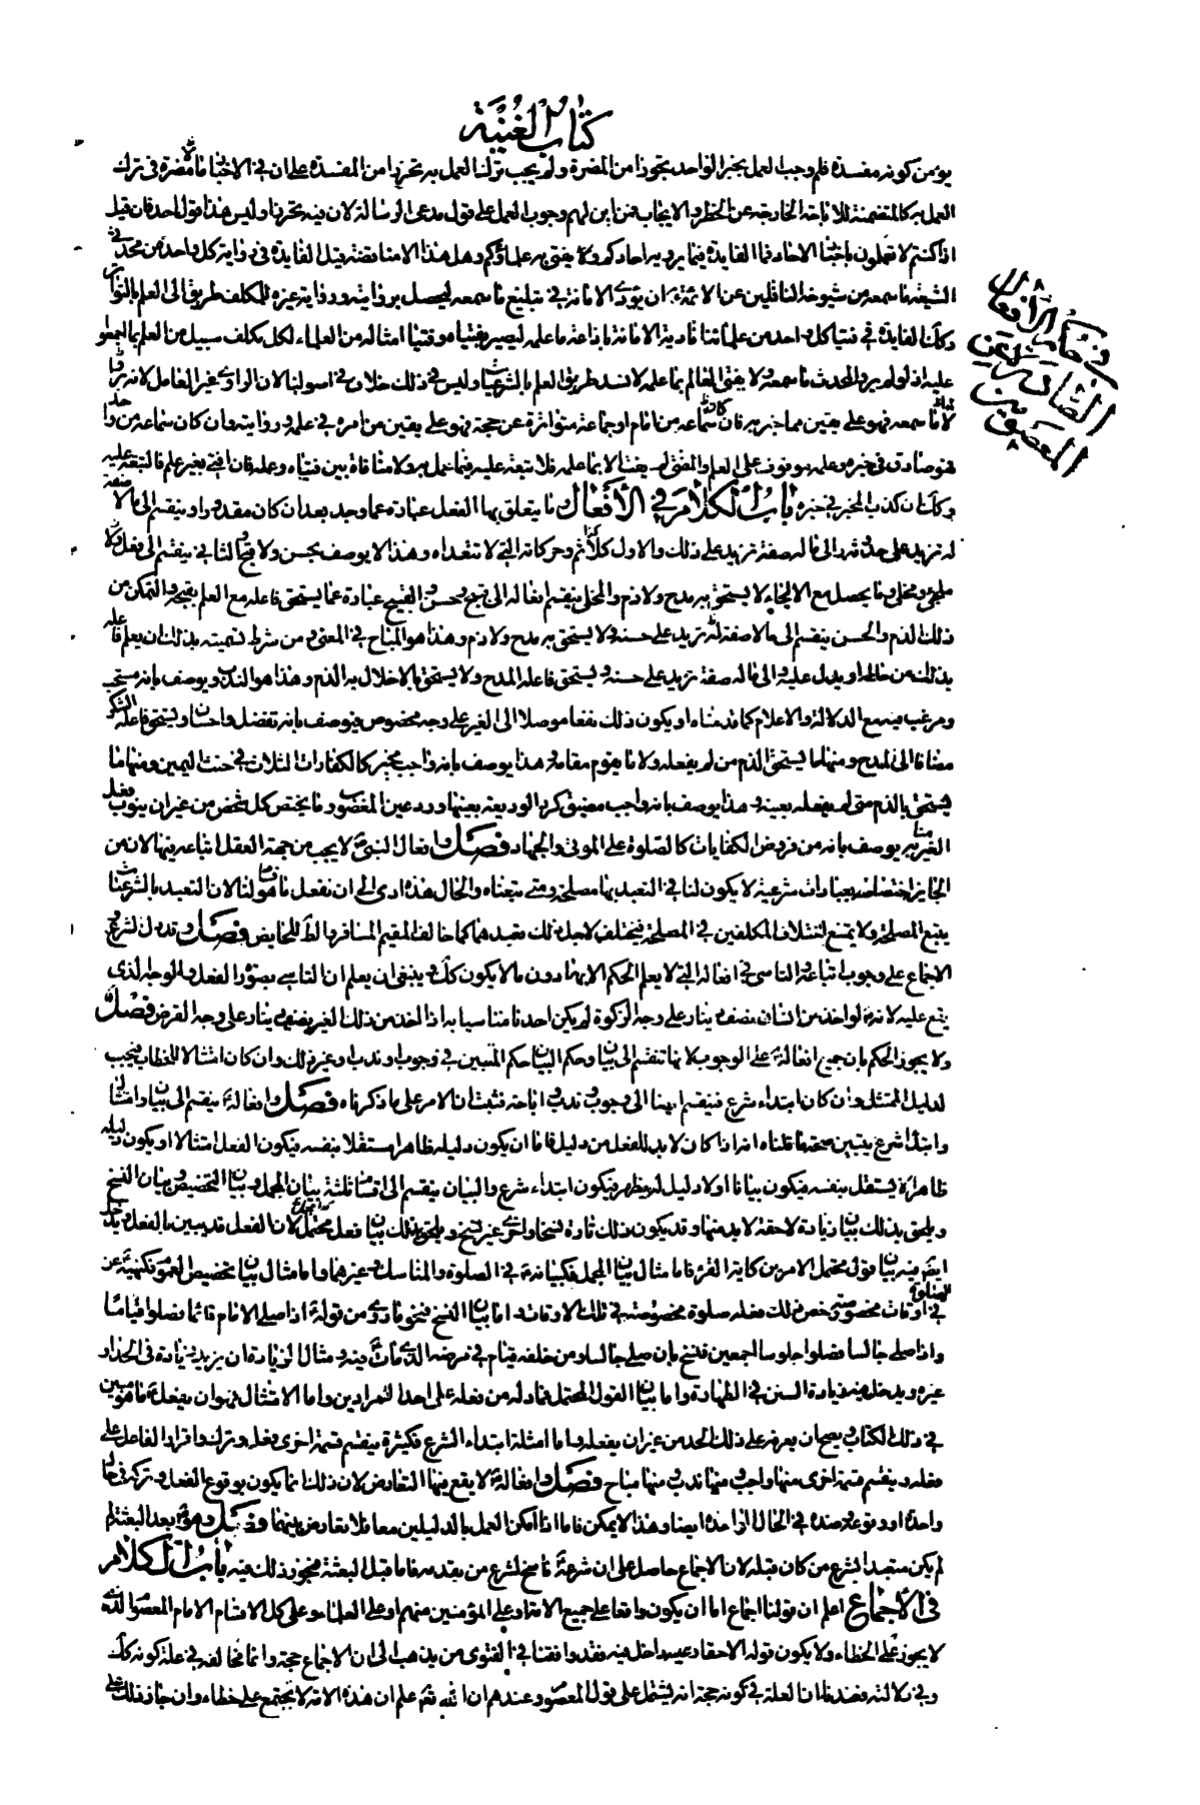 كتاب الغنية
يومن كونه مفسدة فلم وجب العمل بخبر الواحد تحوزا من المضرة ولم يجب ترك العمل به تحرزا من المفسدة على ان في الاخبار ما مضرة في ترك
العمل به كالمتضمنة للاباحة الخارجة عن الحظر والايجاب فمن اين لهم وجوب العمل على قول مدعى الرسالة لان فيه تحرزا وليس هذا قول احد فان قيل
اذا كنتم لا تعملون باخبار الاحاد فما الفايدة فيما يرويه احادكم ولا يفتى به علماؤكم وهل هذا الا مناقضة قيل الفايدة في رواية كل واحد من محدثي
الشيعة ما سمعه من شيوخه الناقلين عن الائمة ان يؤدي الامانة في تبليغ ما سمعه ليحصل بروايته ورواية غيره للمكلف طريق الى العلم بالتواتر
وكذا الفايدة في فتيا كل واحد من علمائنا تادية الامانة باذاعة ما علمه ليصير بفتياه وفتيا امثاله من العلماء لكل مكلف سبيل من العلم بما اجمعوا
عليه اذ لو لم يرو المحدث ما سمعه ولا يفتى العالم بما علمه لانسد طريق العلم بالشرعيات وليس في ذلك خلاف في اصولنا لان الراوى غير العامل لانه يرى
لانا سمعه فهو على يقين مما اخبر به فان كان سماعه من امام او جماعة متواترة عن حجة فهو على يقين من امره في علمه وروايته وان كان سماعه من واحد
فهو صادق في خبره وعلمه موقوف على العلم والمفتى لم يفت الا بما علمه فلا تبعة عليه فيما عمل به ولا منافاة بين فتياه وعمله فان افتى بغير علم فالتبعة عليه
وكذا ان كذب المخبر في خبره باب الكلام في الأفعال ما يتعلق بها الفعل عبارة عما وجد بعد ان كان مقدورا وينقسم الى ما لا صفة
له تزيد على حدوثه والى ما له صفة تزيد على ذلك والاول كلام وحركاته التي لا تتعداه وهذا لا يوصف بحسن ولا قبح والثاني ينقسم الى فعل
ملجئ ومخلى وما يحصل مع الالجاء لا يستحق به مدح ولا ذم والمخلى ينقسم افعاله الى قبيح وحسن والقبيح عبارة عما يستحق فاعله مع العلم بقبحه والتمكن من
ذلك الذم والحسن ينقسم الى ما لا صفة له تزيد على حسنه ولا يستحق به مدح ولا ذم وهذا هو المباح في المعنى ومن شرط تسميته بذلك ان يعلم فاعله
بذلك من حاله او يدل عليه والى ما له صفة تزيد على حسنه ويستحق فاعله المدح ولا يستحق بالاخلال به الذم وهذا هو الندب ويوصف بانه مستحب
ومرغب فيه مع الدلالة والاعلام كما قدمناه او يكون ذلك نفعا موصلا الى الغير على وجه مخصوص فيوصف بانه تفضل واحسان ويستحق فاعله الشكر
مضافا الى المدح ومنها ما يستحق الذم من لم يفعله ولا ما يقوم مقامه هذا يوصف بانه واجب مخير كالكفارات الثلاث في حنث اليمين ومنها ما
يستحق بالذم متى لم يفعله بعينه وهذا يوصف بانه واجب مضيق كرد الوديعة بعينها ورد عين المغصوب وما يختص كل شخص من غير ان ينوب فعل
الغير منا به يوصف بانه من فروض الكفايات كالصلوة على الموتى والجهاد فصل وافعال النبي لا يجب من جهة العقل اتباعه فيها لان من
الجايز اختصاصه بعبادات شرعية لا يكون لنا في التعبد بها مصلحة ومتى تبعناه والحال هذه ادى الى ان نفعل ما هو لنا لان التعبد بالشرعيات
يتبع المصلحة ولا يمتنع اختلاف المكلفين في المصلحة فيختلف لاجل ذلك تعبدهما كما خالف المقيم المسافر والطاهر الحايض فصل وقد دل الشرع و
الاجماع على وجوب اتباعه والتاسى في افعاله التي لا يعلم الحكم الا بها دون ما لا يكون كذلك وينبغي ان يعلم ان التاسي بصورة الفعل والوجه الذي
يقع عليه لانه لو اخذ من انسان نصف دينار على وجه الزكوة لم يكن احدنا متاسيا به اذا اخذ من ذلك الغير نصف دينار على وجه القرض فصل
ولا يجوز الحكم بان جميع افعاله على الوجوب لانها تنقسم الى بيان وحكم البيان حكم المبين في وجوب او ندب او غير ذلك وان كان امتثالا للخطاب فيجب
لدليل الممتثل وان كان ابتداء شرع فينقسم ايضا الى وجوب وندب واباحة فثبت ان الامر على ما ذكرناه فصل وافعاله ينقسم الى بيان وامتثال
وابتداء شرع يتبين صحة ما قلناه انه اذا كان لا بد للفعل من دليل فاما ان يكون دليله ظاهرا مستقلا بنفسه فيكون الفعل امتثالا او يكون دليله
ظاهرا لا يستقل بنفسه فيكون بيانا او لا دليل له يظهر فيكون ابتداء شرع والبيان ينقسم الى اقسام ثلثة بيان المجمل وبيان التخصيص وبيان النسخ
ويلحق بذلك بيان زيادة لاحقة لا بد منها وقد يكون ذلك تارة نسخا واخرى غير نسخ ويلحق بذلك بيان فعل محتمل لان الفعل قد يبين بالفعل ويدخل
ايضا فيه بيان قول محتمل الامرين كاية القرء فاما مثال بيان المجمل فكبيانه في الصلوة والمناسك وغيرهما واما مثال بيان تخصيص العموم فكنهيه عن الصلوة
في اوقات مخصوصة خص ذلك بفعله صلوة مخصوصة في تلك الاوقات واما بيان النسخ فنحو ما روى من قوله اذا صلى الامام قائما فصلوا قياما
واذا صلى جالسا فصلوا جلوسا اجمعين فنسخ بان صلى جالسا ومن خلفه قيام في مرضه الذي مات فيه ومثال الزيادة ان يزيد زيادة في الحد او
غيره ويدخل فيه زيادة السنن في الطهارة واما بيان القول المحتمل فما دل من فعله على احد المرادين واما الامتثال فهو ان يفعل ما هو مبين
في ذلك الكتاب ويصح ان يعرف على ذلك الحد من غير ان يفعله واما امثلة ابتداء الشرع فكثيرة ينقسم قسمة اخرى فعل وترك واقرار الفاعل على
فعله وينقسم قسمة اخرى منها واجب ومنها ندب ومنها مباح فصل وافعاله لا يقع فيها التعارض لان ذلك انما يكون بوقوع الفعل وتركه في حال
واحدة او وقوعه وضده في الحال الواحدة ايضا وهذا لا يمكن فاما اذا امكن العمل بالدليلين معا فلا تعارض بينهما فصل وهو بعد البعثة
لم يكن متعبدا بشرع من كان قبله لان الاجماع حاصل على ان شرعه ناسخ لشرع من تقدمه فاما قبل البعثة فيجوز ذلك فيه باب الكلام
في الأجماع اعلم ان قولنا اجماع اما ان يكون واقعا على جميع الامة او على المؤمنين منهم او على العلماء وعلى كل الاقسام الامام المعصوم الذي
لا يجوز على الخطاء ولا يكون قوله الا حقا داخل فيه فقد وافقنا في الفتوى من يذهب الى ان الاجماع حجة وانما نخالفه في علة كونه كذلك
وفي دلالته فعندنا ان العلة في كونه حجة انه يشتمل على قول المعصوم وعندهم ان الله تعم علم ان هذه الامة لا تجتمع على خطاء وان جاز ذلك على
في احكام الافعال
الصادرة عن
المعصومين